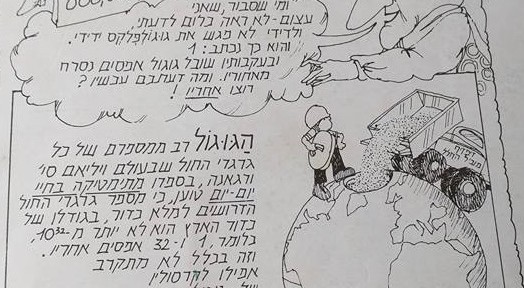 ומי שסבור, שאני
עצום - לא ראה כלום לדעתי,
ולדידי לא פגש את גוגולפלקס ידידי.
והוא כך נכתב: 1
ובעקבותיו שובל גוגול אפסים נסרח
מאחוריו. ומה דעתכם עכשיו?
רוצו אחריו!
הַגּוּגוֹל רב ממספרם של כל
גרגרי החול שבעולם ויליאם סי'
ורגאנה, בספרו מתימטיקה בחיי
יום-יום טוען, כי מספר גרגרי החול
הדרושים למלא כדור, בגודלו של
כדור הארץ הוא לא יותר מ 10³²,
כלומר, 1 ו-32 אפסים אחריו.
וזה בכלל לא מתקרב
אפילו לקרסוליו
של